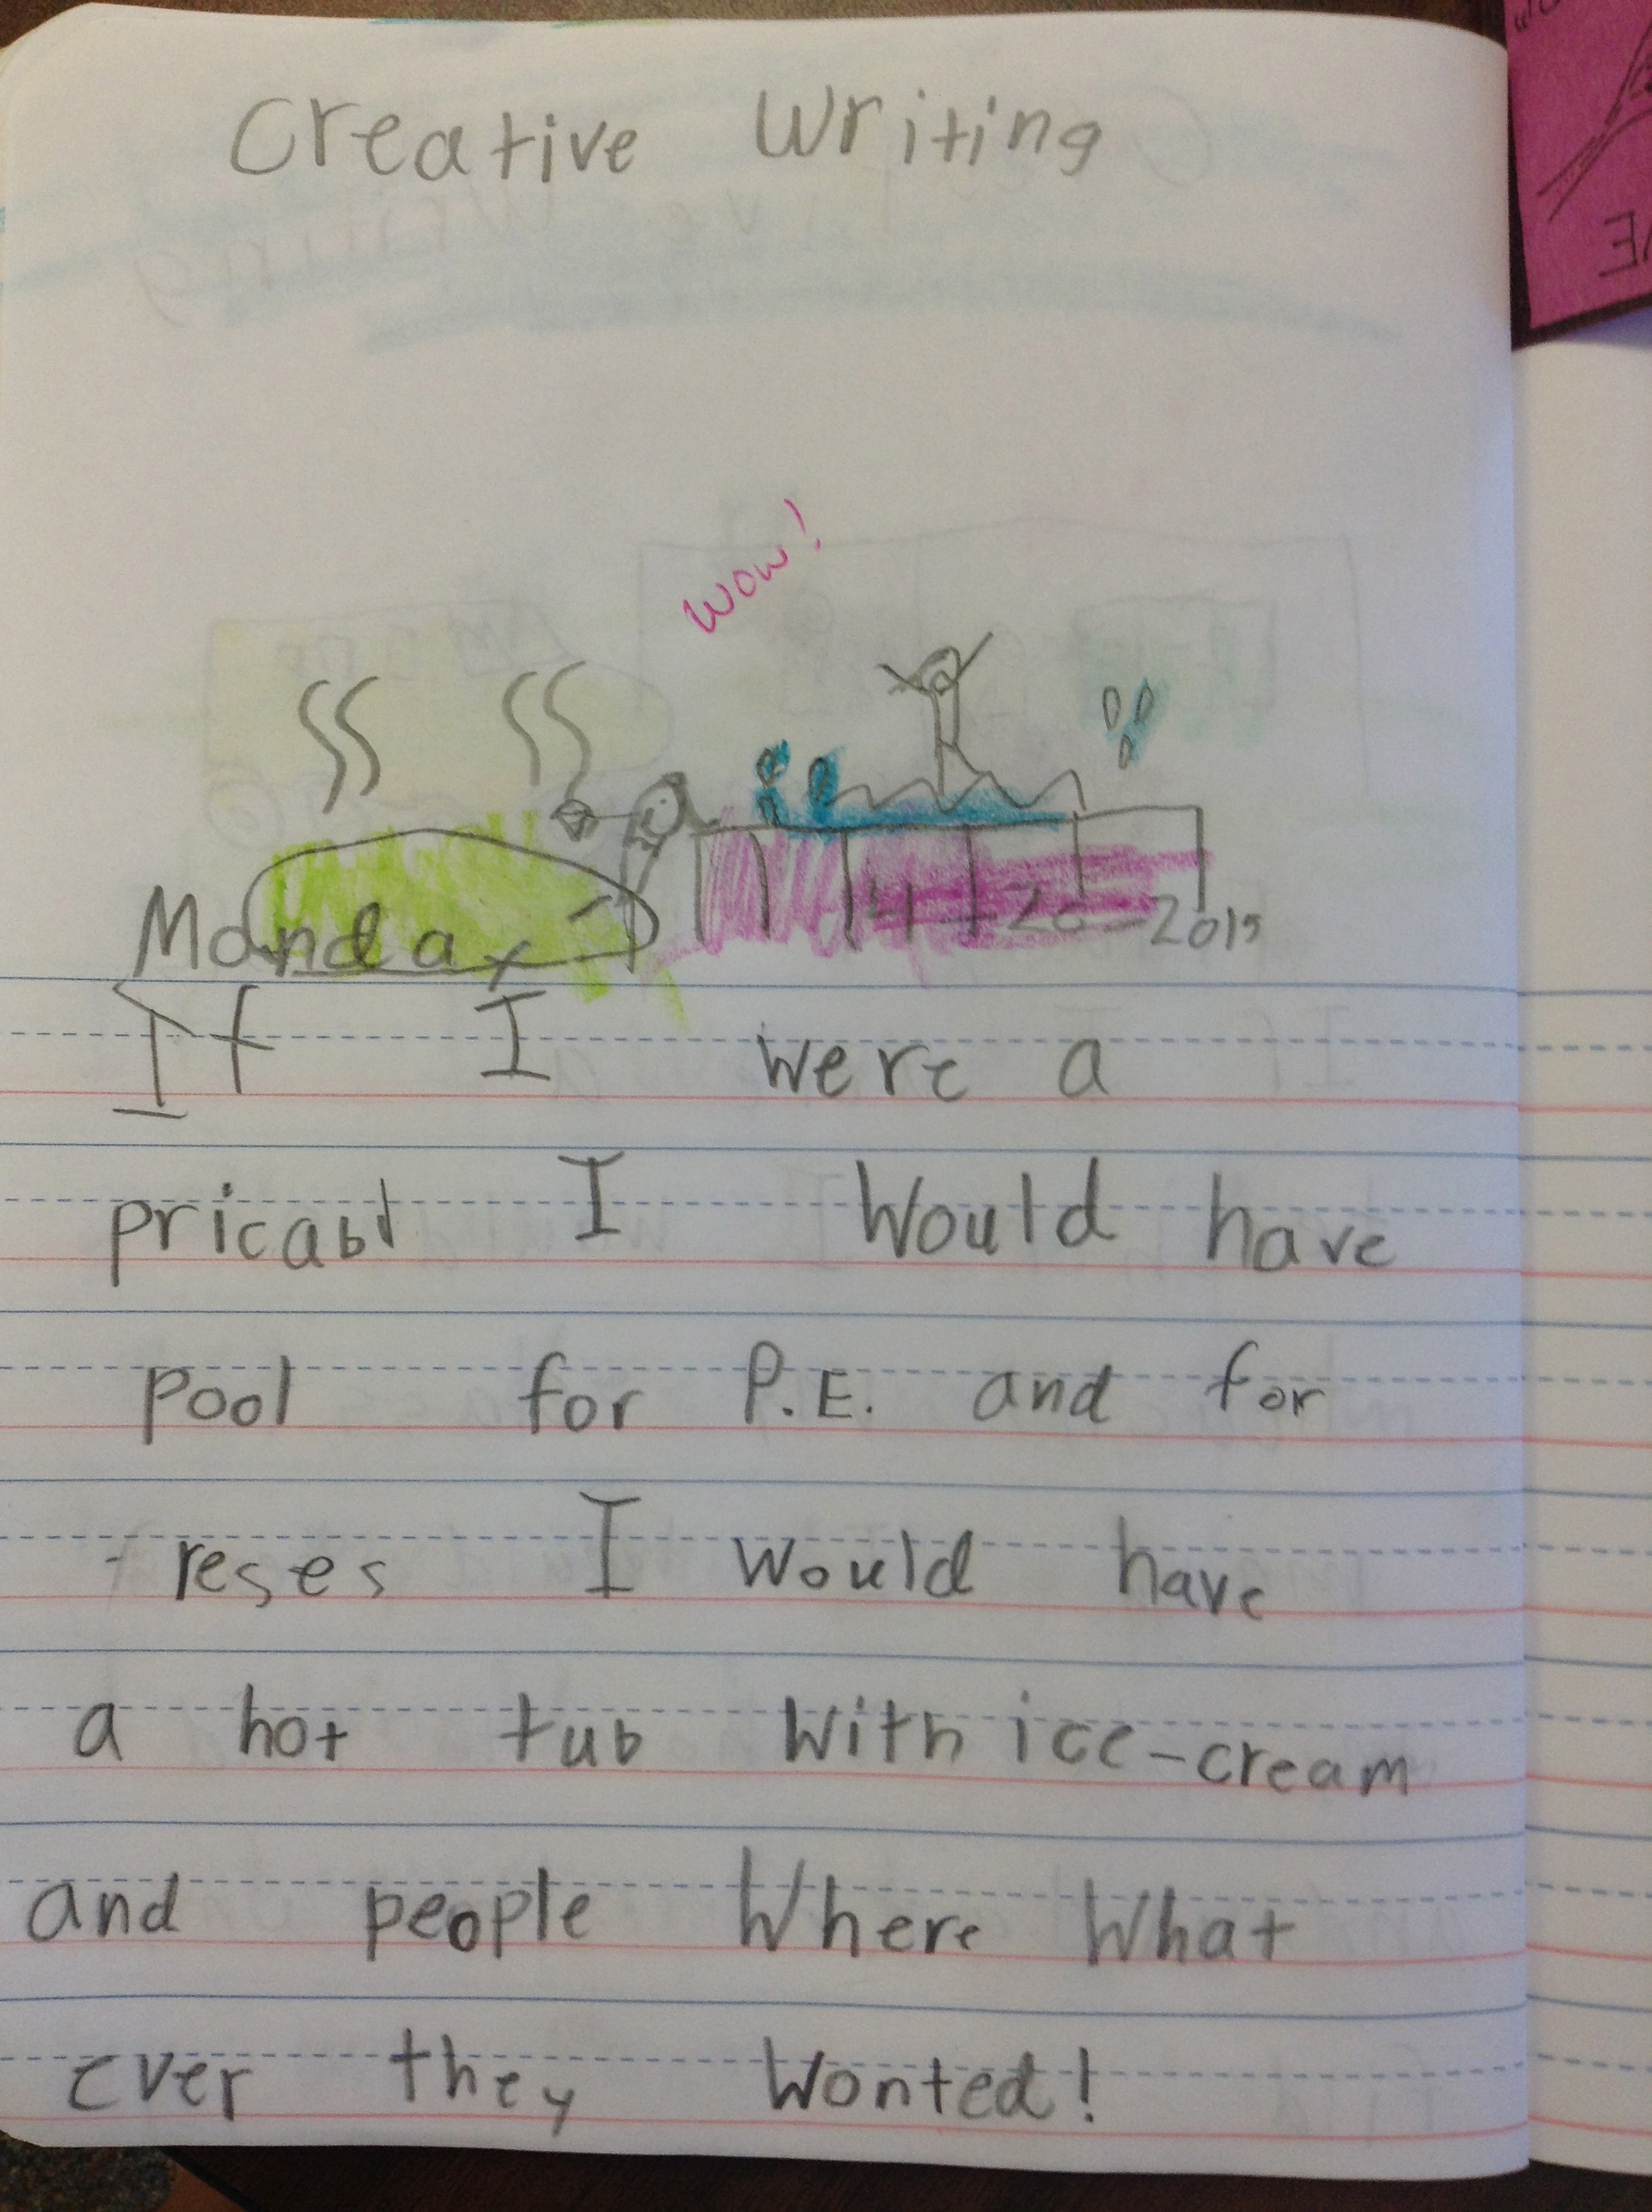 Creative Writing
Wow!
Monday, 4-20-2015
If I were a
pricabl I Would have
pool for P.E. and for
reses I would have
a hot tub With ice-cream
and people Where What
ever they Wonted!